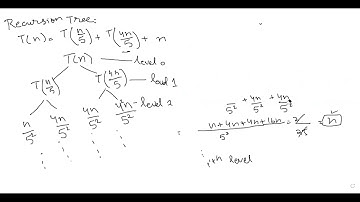 Recursion Tree:
T(n) = T(n/5) + T(4n/5) + n
T(n) → level 0
T(n/5) T(4n/5) → level 1
n/5² 4n/5² 4n/5² → level 2
n/5² + 4n/5² + 4n/5²
= n+4n+4n+16n/5² = = n
ith level